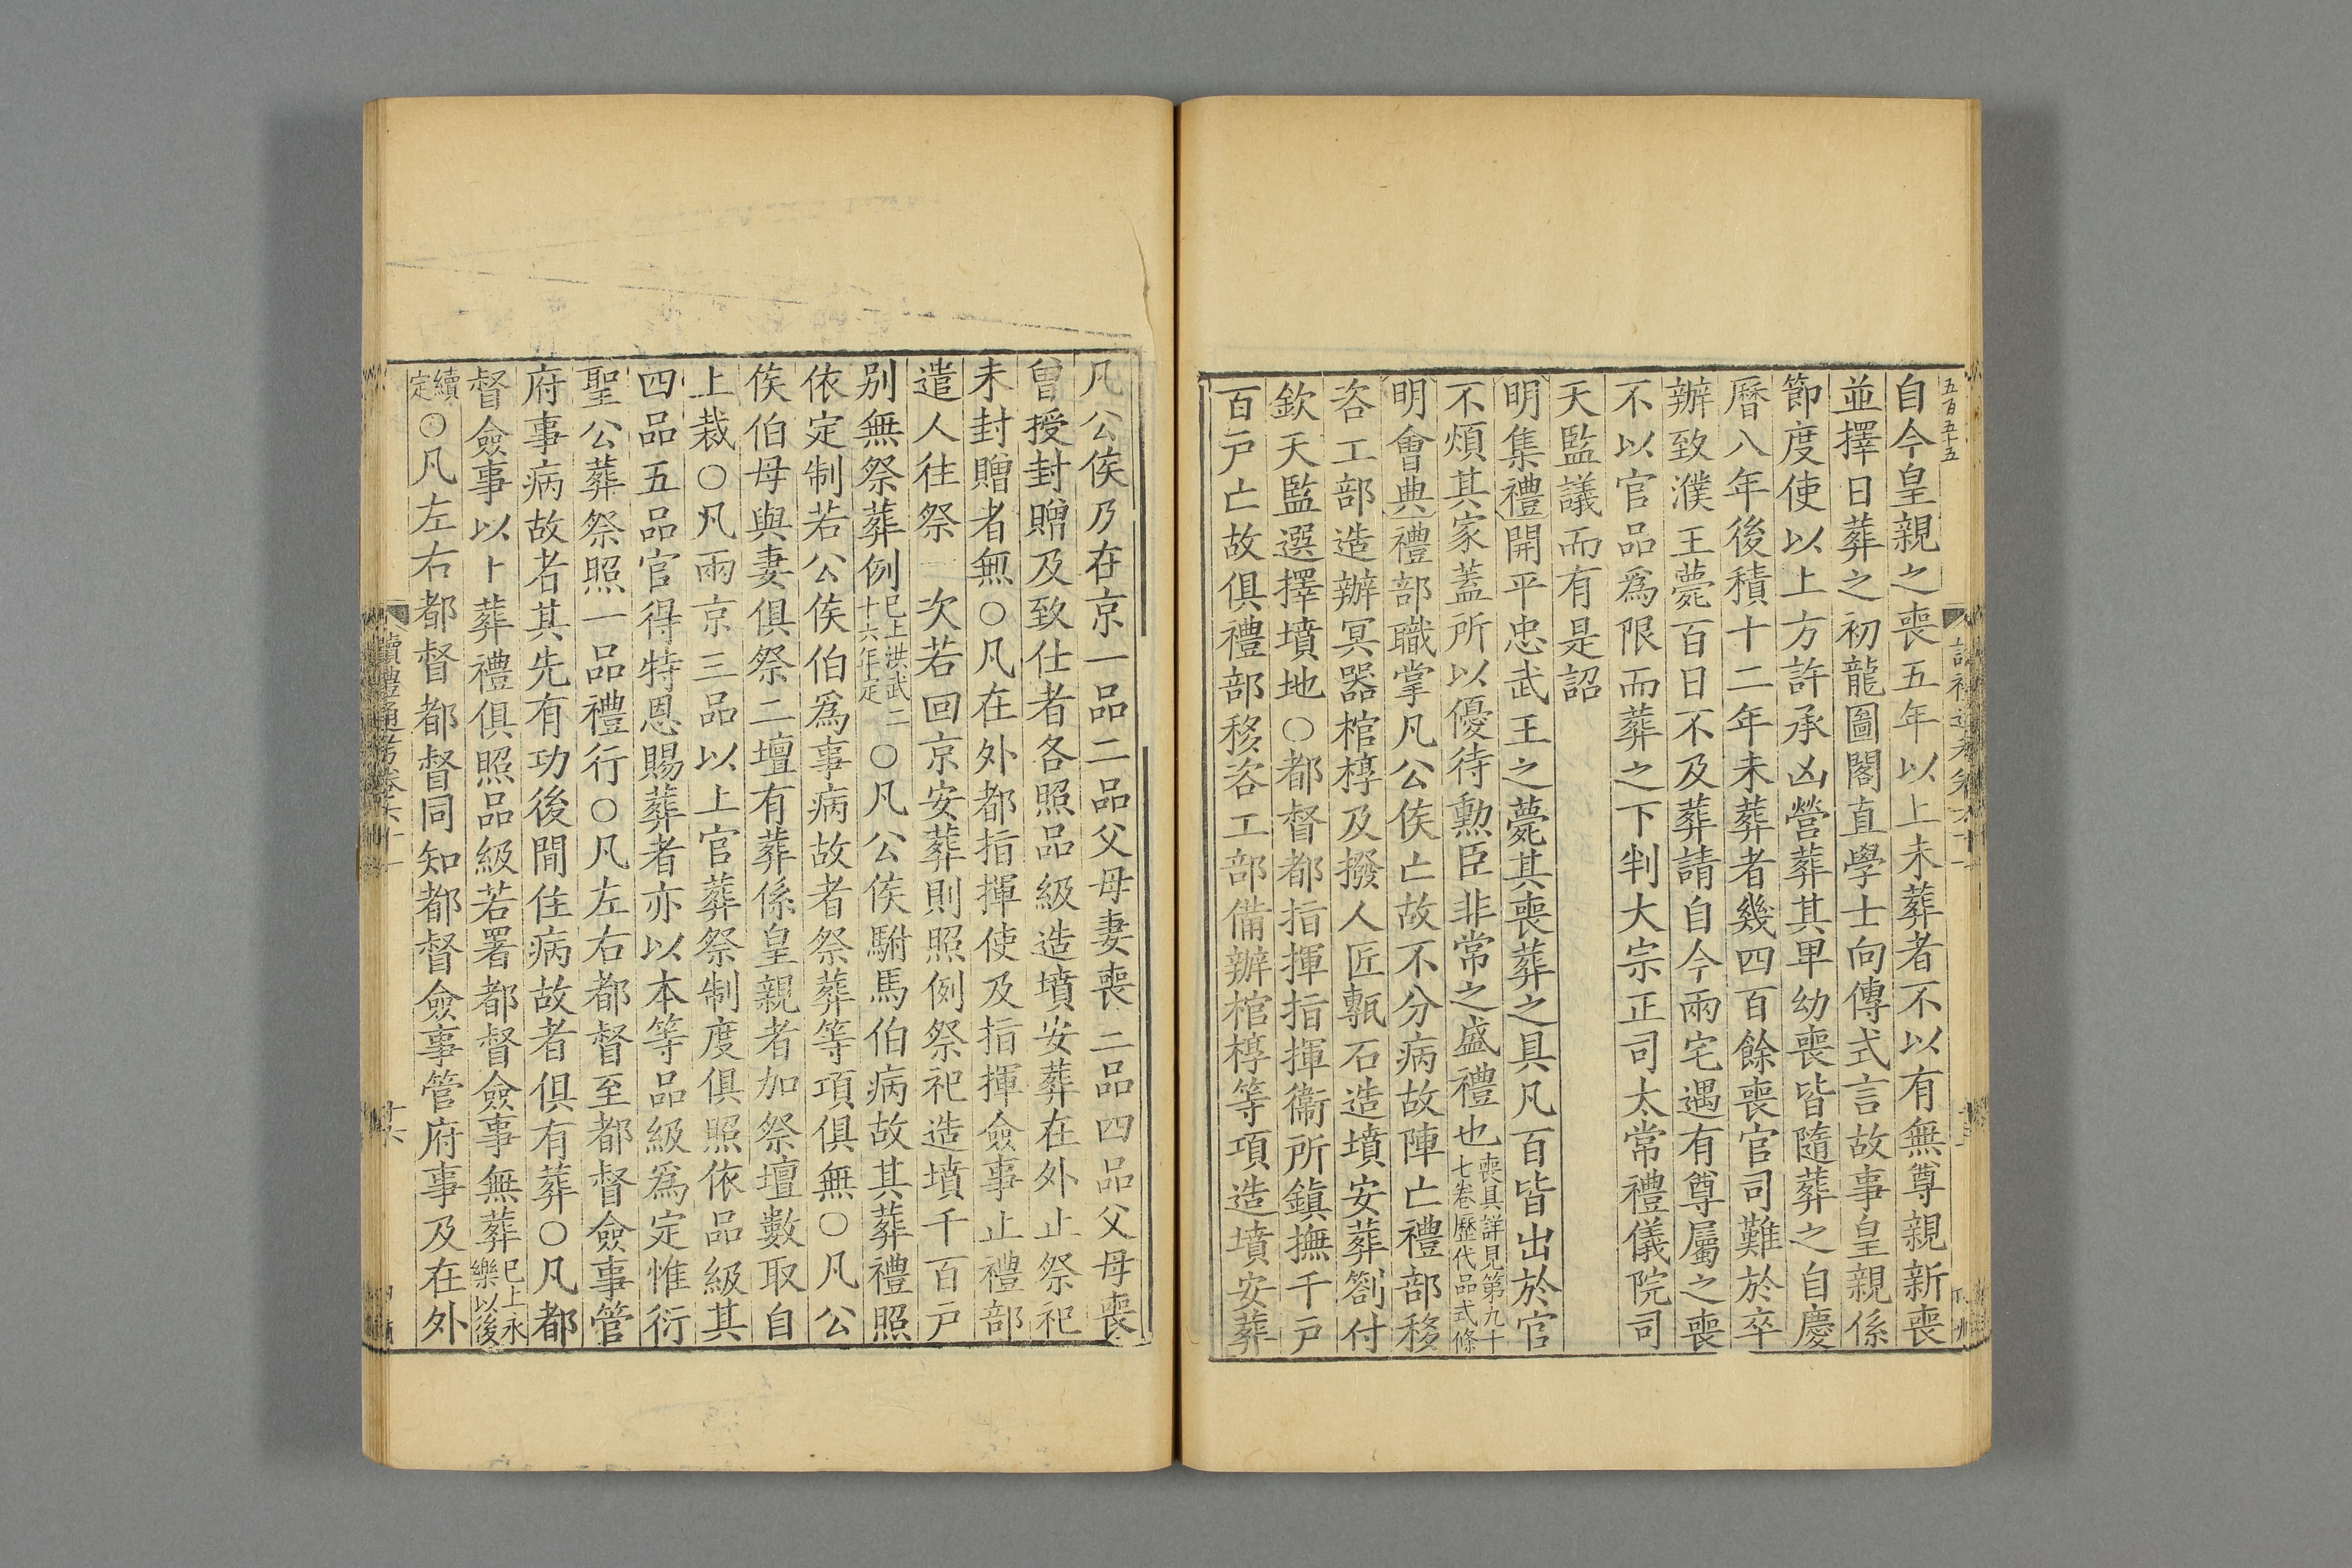 五百五十五
自今皇親之喪五年以上未葬者不以有無尊親新喪
並擇日葬之初龍圖閣直學士向傳式言故事皇親係
節度使以上方許承凶營葬其卑幼喪皆隨葬之自慶
曆八年後積十二年未葬者幾四百餘喪官司難於卒
辦致濮王薨百日不及葬請自今兩宅遇有尊屬之喪
不以官品爲限而葬之下判大宗正司太常禮儀院司
天監議而有是詔
明集禮開平忠武王之薨其喪葬之具凡百皆出於官
不煩其家蓋所以優待勳臣非常之盛禮也喪具詳見第九十七卷歷代品式條
明會典禮部職掌凡公侯亡故不分病故陣亡禮部移
咨工部造辦冥器棺椁及撥人匠甎石造墳安葬劄付
欽天監選擇墳地○都督都指揮指揮衞所鎮撫千戸
百戸亡故俱禮部移咨工部備辦棺椁等項造墳安葬
凡公侯乃在京一品二品父母妻喪三品四品父母喪
曾授封贈及致仕者各照品級造墳安葬在外止祭祀
未封贈者無○凡在外都指揮使及指揮僉事止禮部
遣人往祭一次若回京安葬則照例祭祀造墳千百戸
别無祭葬例已上洪武二十六年定○凡公侯駙馬伯病故其葬禮照
依定制若公侯伯爲事病故者祭葬等項俱無○凡公
侯伯母與妻俱祭二壇有葬係皇親者加祭壇數取自
上裁○凡兩京三品以上官葬祭制度俱照依品級其
四品五品官得特恩賜葬者亦以本等品級爲定惟衍
聖公葬祭照一品禮行○凡左右都督至都督僉事管
府事病故者其先有功後閒住病故者俱有葬○凡都
督僉事以上葬禮俱照品級若署都督僉事無葬已上永樂以後
續定○凡左右都督都督同知都督僉事管府事及在外
讀禮通考卷六十一